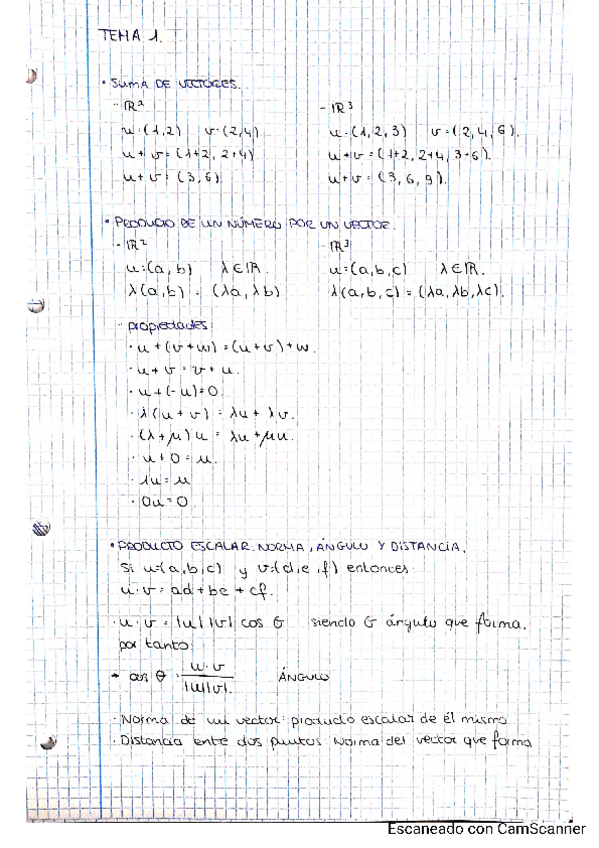 TEMA 1.
· SUMA DE VECTORES.
- ℝ² - ℝ³
u=(1,2) v=(2,4) u=(1,2,3) v=(2,4,6).
u+v=(1+2, 2+4) u+v=(1+2, 2+4, 3+6).
u+v=(3,6) u+v=(3,6,9).
· PRODUCTO DE UN NÚMERO POR UN VECTOR.
- ℝ² - ℝ³
u=(a,b) λ∈ℝ. u=(a,b,c) λ∈ℝ.
λ(a,b) = (λa, λb) λ(a,b,c) = (λa, λb, λc).
- propiedades
· u+(v+w)=(u+v)+w.
· u+v=v+u.
· u+(-u)=0.
· λ(u+v) = λu + λv.
· (λ+μ)u = λu+μu.
· u+0=u.
· 1u=u
· 0u=0
· PRODUCTO ESCALAR. NORMA, ÁNGULO Y DISTANCIA.
Si u=(a,b,c) y v=(d,e,f) entonces
u·v=ad+be+cf.
· u·v=|u||v| cos θ siendo θ ángulo que forma.
por tanto
→ cos θ = u·v / |u||v|. ÁNGULO
· Norma de un vector: producto escalar de él mismo
· Distancia entre dos puntos: Norma del vector que forma
Escaneado con CamScanner